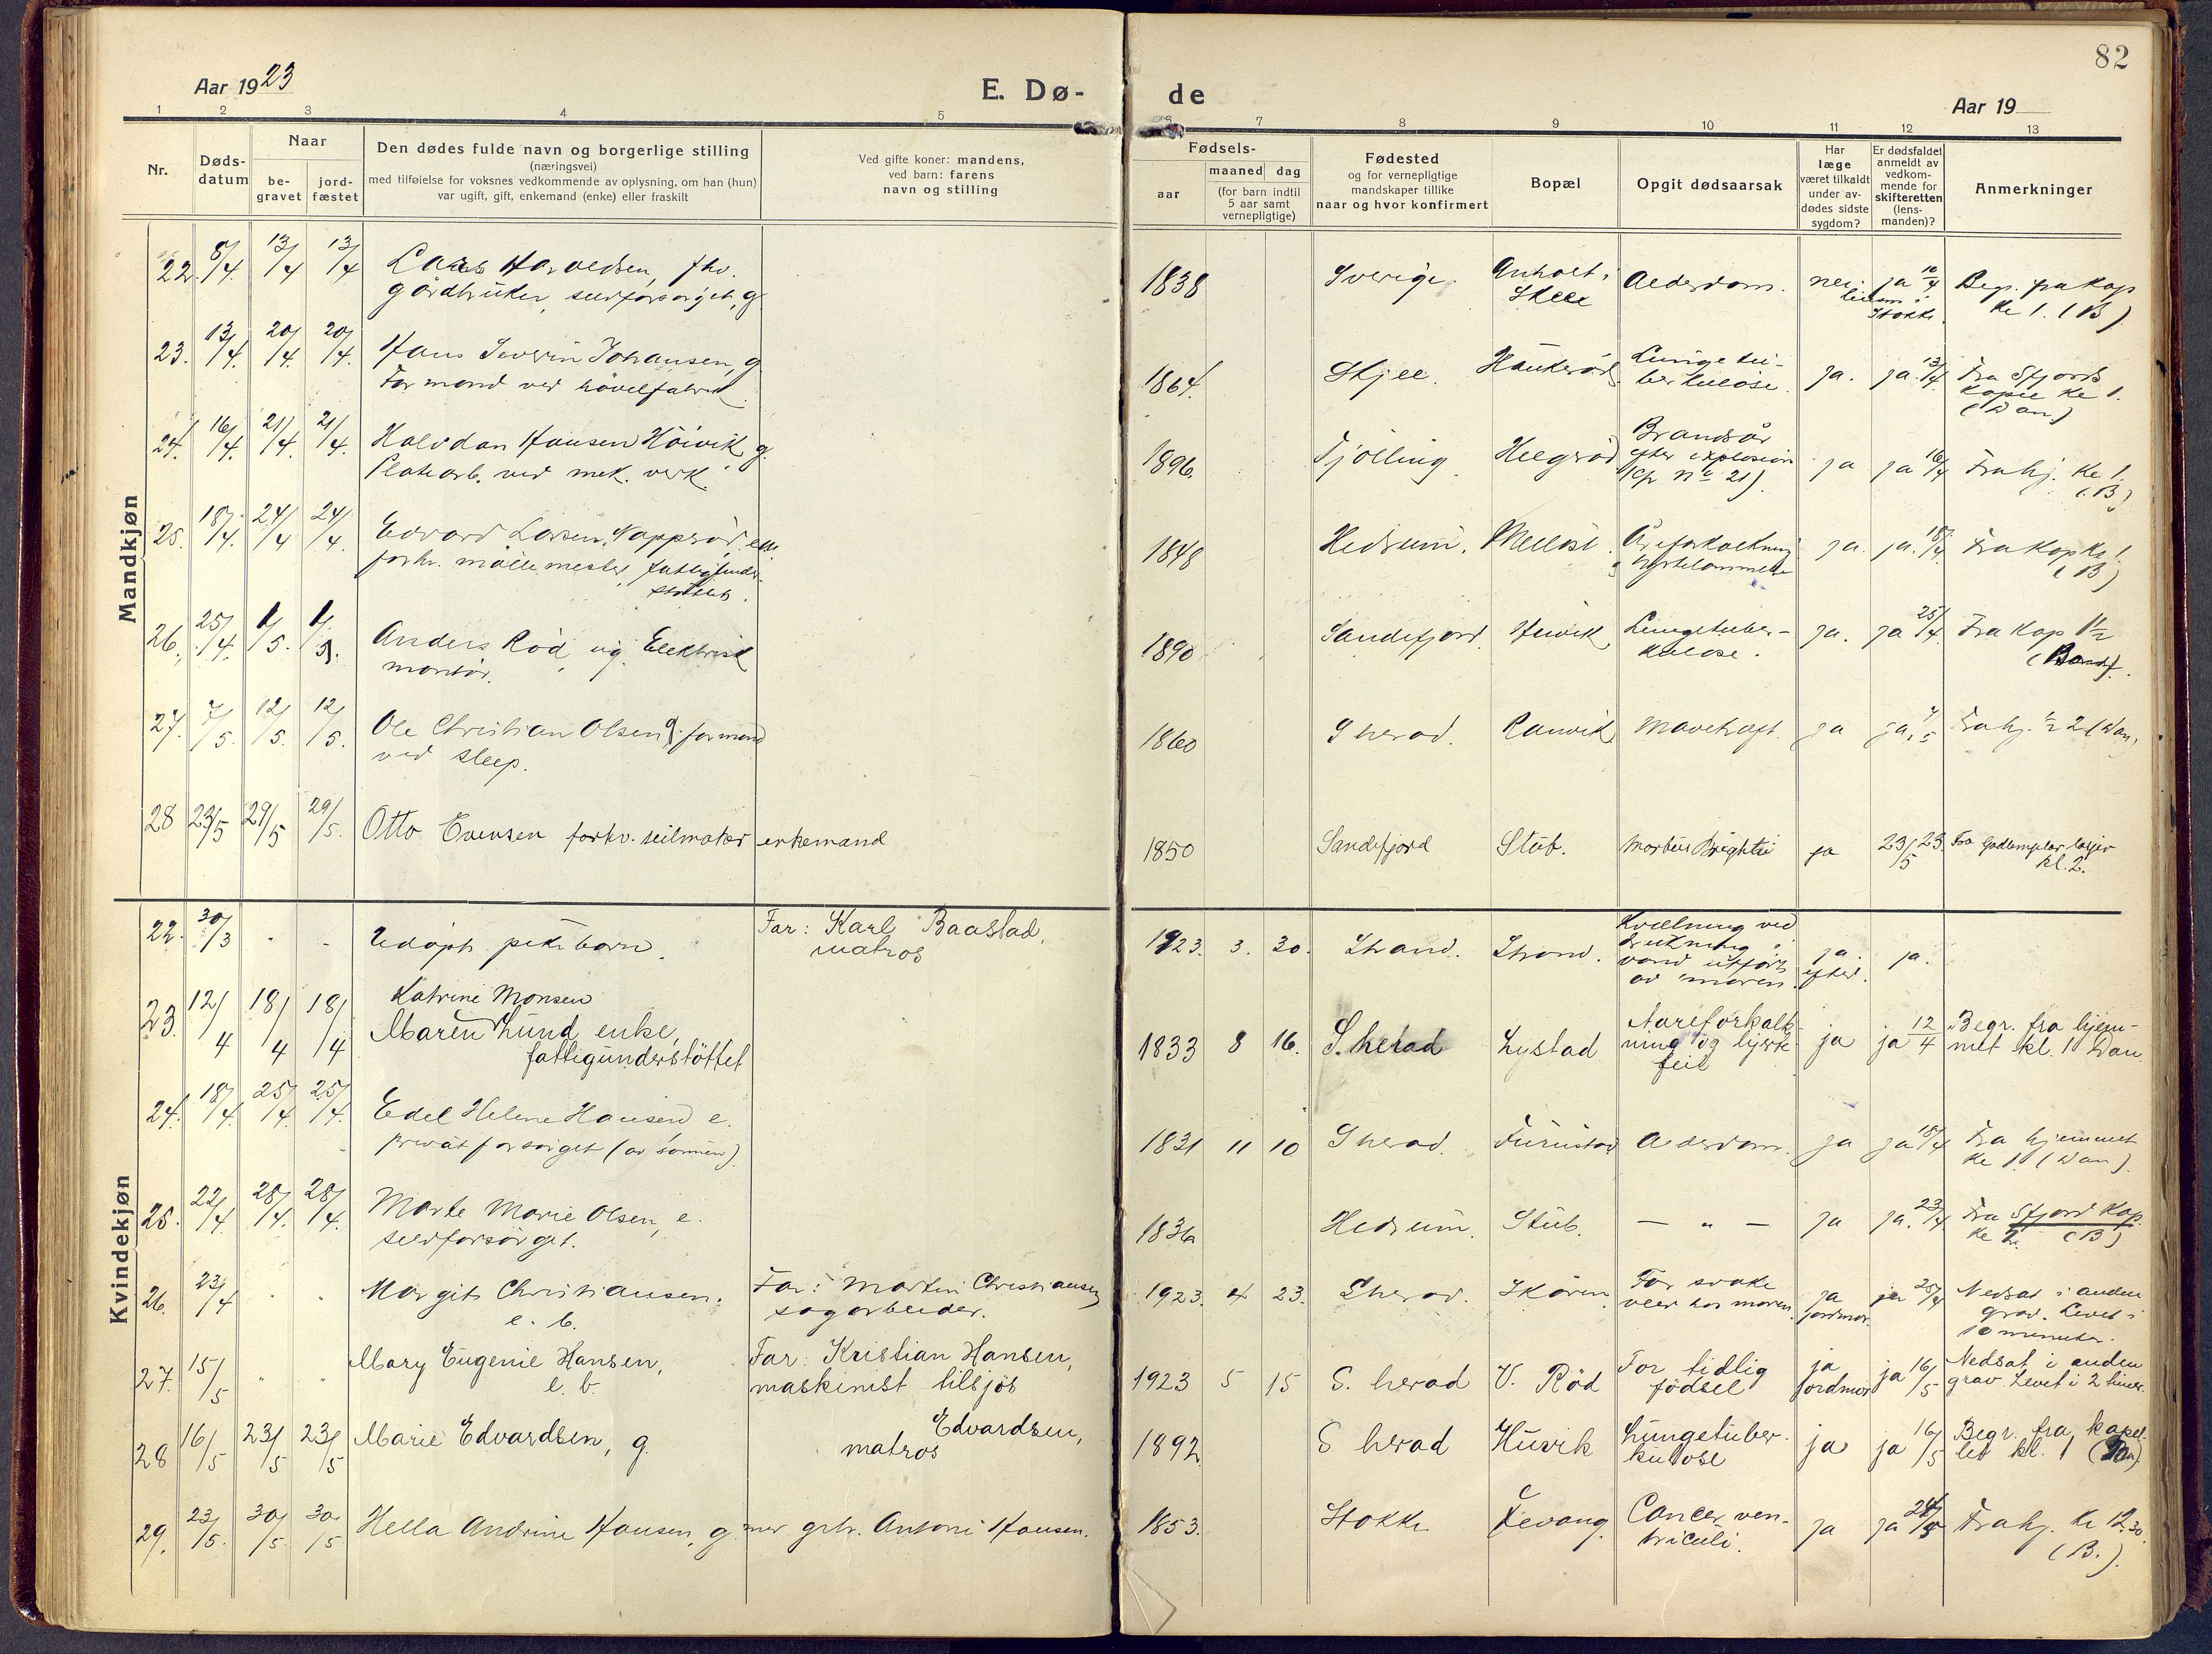 82
Aar 1923
E. Dø-
de
Aar 19
1 2 3 4 5 6 7 8 9 10 11 12 13
Nr.
Døds-
datum
Naar
be-
gravet
jord-
fæstet
Den dødes fulde navn og borgerlige stilling
(næringsvei)
med tilføielse for voksnes vedkommende av oplysning, om han (hun)
var ugift, gift, enkemand (enke) eller fraskilt
Ved gifte koner: mandens,
ved barn: farens
navn og stilling
Fødsels-
aar
maaned dag
(for barn indtil
5 aar samt
vernepligtige)
Fødested
og for vernepligtige
mandskaper tillike
naar og hvor konfirmert
Bopæl
Opgit dødsaarsak
Har
læge
været tilkaldt
under av-
dødes sidste
sygdom?
Er dødsfaldet
anmeldt av
vedkom-
mende for
skifteretten
(lens-
manden)?
Anmerkninger
Mandkjøn
22. 8/4. 13/4 13/4 Lars fhv.
gårdbruker, selvforsörget, g.
1838 Sverige. Anholt i
Skjee Alderdom. nei. ja 10/4
lensm i
Stokke.
Begr. fra kap
kl 1. (B)
23. 13/4. 20/4. 20/4. Hans Severin Johansen, g
Formand ved hövelfabrik.
1864. Skjee. Haukeröd Lungetu-
berkulose. ja. ja. 13/4. Fra Sfjords
kapel kl 1.
(Dan)
24. 16/4. 21/4. 21/4. Halvdan Hansen Höivik, g.
Platearb. ved mek. verk.
1896. Tjölling Helgeröd Brandsår
efter explosion
(cfr No 21). ja ja 16/4 Fra hj. kl 1.
(B)
25. 18/4. 24/4 24/4. Edvard Larsen Napperöd. em
forhv. möllemester, fattigunder-
støttet.
1848 Hedrum. Melløse. Åreforkalkning
ja. ja. 18/4. Fra kap kl 1.
(B)
26. 25/4. 1/5. 1/5. Anders Röd, ug. Elektrisk
montör.
1890 Sandefjord. Huvik Lungetuber-
kulose. ja. ja 25/4. Fra kap 1 1/2
27. 7/5. 12/5. 12/5. Ole Christian Olsen g. formand
ved sleep.
1860 S herad. Ranvik Mavekræft. ja ja, 7/5 Fra hj. 1/2 2 (Dan)
28 23/5 29/5 29/5. Otto Evensen forhv. seilmaker enkemand
1850 Sandefjord Stub. Morbus Brightii ja 23/5 23. Fra Godtemplar logien
kl. 2.
Kvindekjøn
22. 30/3 - - Udöpt pikebarn. Far: Karl Baastad,
matros
1923. 3. 30. Strand. Strand. Kvælning ved
drukning i
vand utfört
av moren. ja.
efter. ja.
23. 12/4 18/4 18/4 Katrine Monsen
Maren Lund enke,
fattigunderstöttet
1833 8 16. S. herad Lystad Aareforkalk-
ning og hjerte-
feil ja ja 12/4 Begr. fra hjem-
met kl. 1 Dan
24. 18/4 25/4. 25/4. Edel Helene Hansen e.
privatforsörget (av sönnen).
1831 11 10 S herad. Furustad Alderdom. ja ja 18/4 Fra hjemmet
kl 1. (Dan).
25. 22/4. 28/4. 28/4. Marte Marie Olsen, e.
selvforsörget.
1836 Hedrum. Stub. — " — ja ja. 23/4 Fra Sfjord kap.
kl 2. (B)
26. 23/4 " " Margit Christiansen.
e. b. Far: Martin Christiansen
sagarbeider.
1923. 4 23. S herad. Skåren For svake
veer hos moren. ja
jordmor. ja 25/4 Nedsat i anden
grav. Levet i
10 minuter.
27. 15/5 " " Mary Eugenie Hansen,
e. b. Far: Kristian Hansen,
maskinist tilsjøs
1923 5 15 S. herad V. Rød For tidlig
fødsel ja
jordmor ja 16/5 Nedsat i anden
grav. Levet i 2 timer.
28 16/5 23/5 23/5 Marie Edvardsen, g. Edvardsen,
matros
1892 S. herad Huvik Lungetuber-
kulose ja ja 16/5 Begr. fra kapel-
let kl. 1
29. 23/5. 30/5. 30/5 Hella Andrine Hansen, g. m grbr. Anton Hansen.
1853. Stokke Fevang. Cancer ven-
triculi. ja ja 24/5 Fra hj. kl 12.30
(B.)